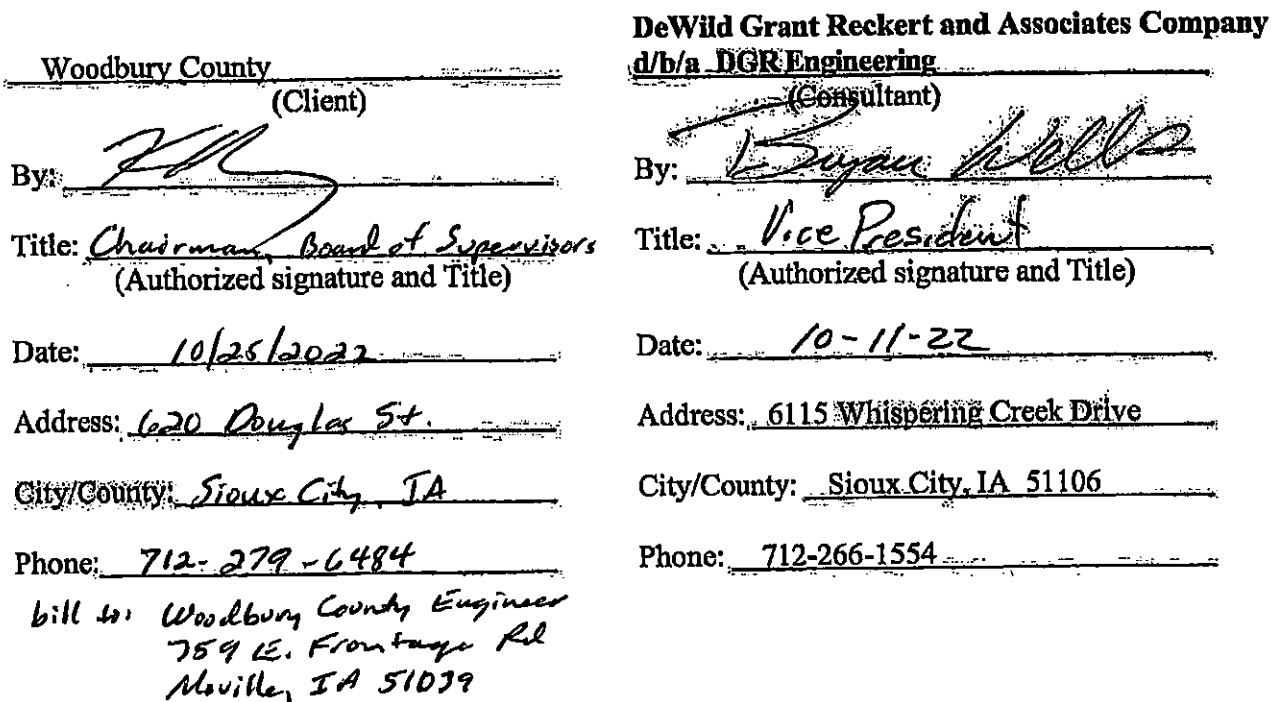 Woodbury County
(Client)
By:
Title: Chairman, Board of Supervisors
(Authorized signature and Title)
Date: 10/25/2022
Address: 620 Douglas St.
City/County: Sioux City, IA
Phone: 712-279-6484
bill to: Woodbury County Engineer
759 E. Frontage Rd
Moville, IA 51039
DeWild Grant Reckert and Associates Company
d/b/a DGR Engineering
(Consultant)
By: Bryan Wells
Title: Vice President
(Authorized signature and Title)
Date: 10-11-22
Address: 6115 Whispering Creek Drive
City/County: Sioux City, IA 51106
Phone: 712-266-1554